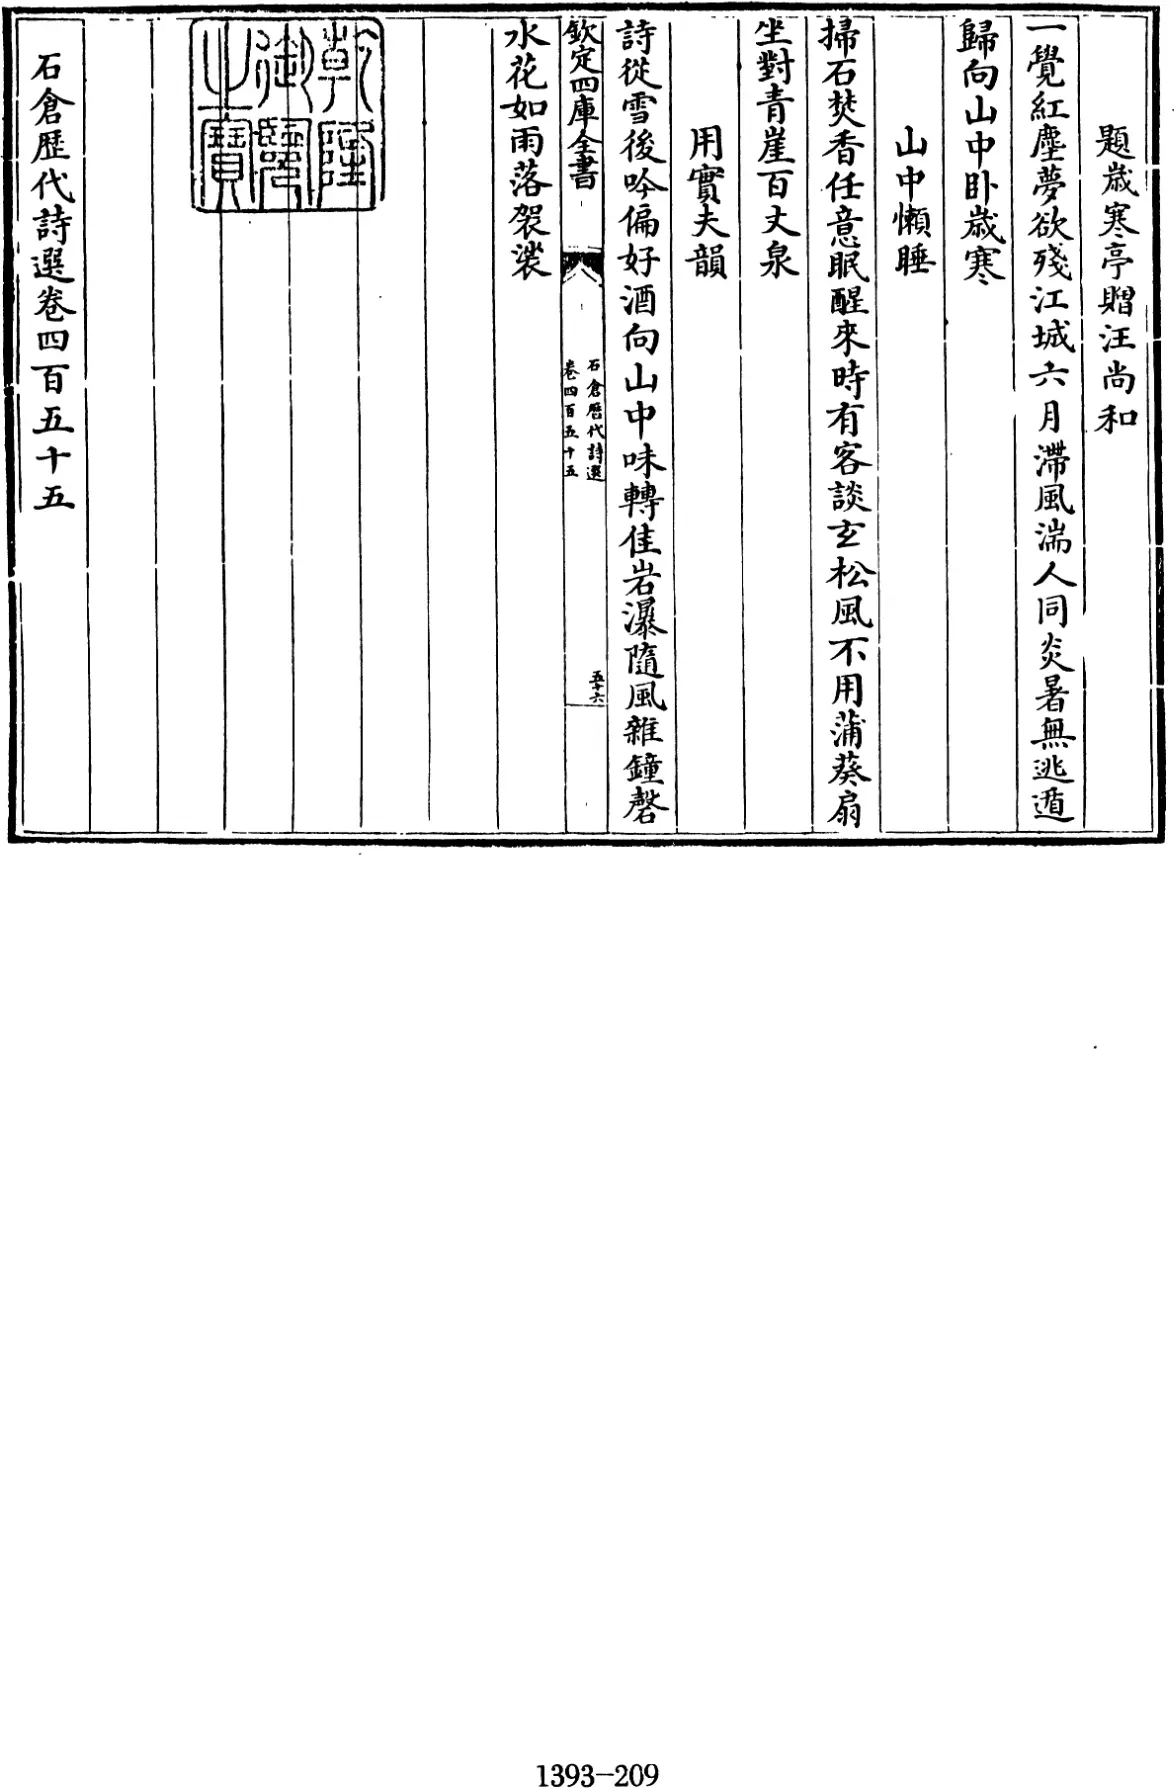 題歲寒亭贈汪尚和
一覺紅塵夢欲殘江城六月滯風湍人同炎暑無逃遁
歸向山中卧歲寒
山中懶睡
掃石焚香任意眠醒來時有客談玄松風不用蒲葵扇
坐對青崖百丈泉
用實夫韻
詩從雪後吟偏好酒向山中味轉佳岩瀑隨風雜鐘磬
欽定四庫全書
石倉歷代詩選
卷四百五十五
五十六
水花如雨落袈裟
乾隆御覽之寶
石倉歷代詩選卷四百五十五
1393-209